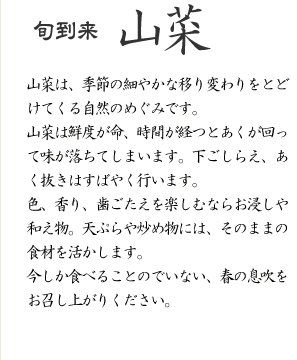 旬到来 山菜
山菜は、季節の細やかな移り変わりをとど
けてくる自然のめぐみです。
山菜は鮮度が命、時間が経つとあくが回っ
て味が落ちてしまいます。下ごしらえ、あ
く抜きはすばやく行います。
色、香り、歯ごたえを楽しむならお浸しや
和え物。天ぷらや炒め物には、そのままの
食材を活かします。
今しか食べることのでいない、春の息吹を
お召し上がりください。